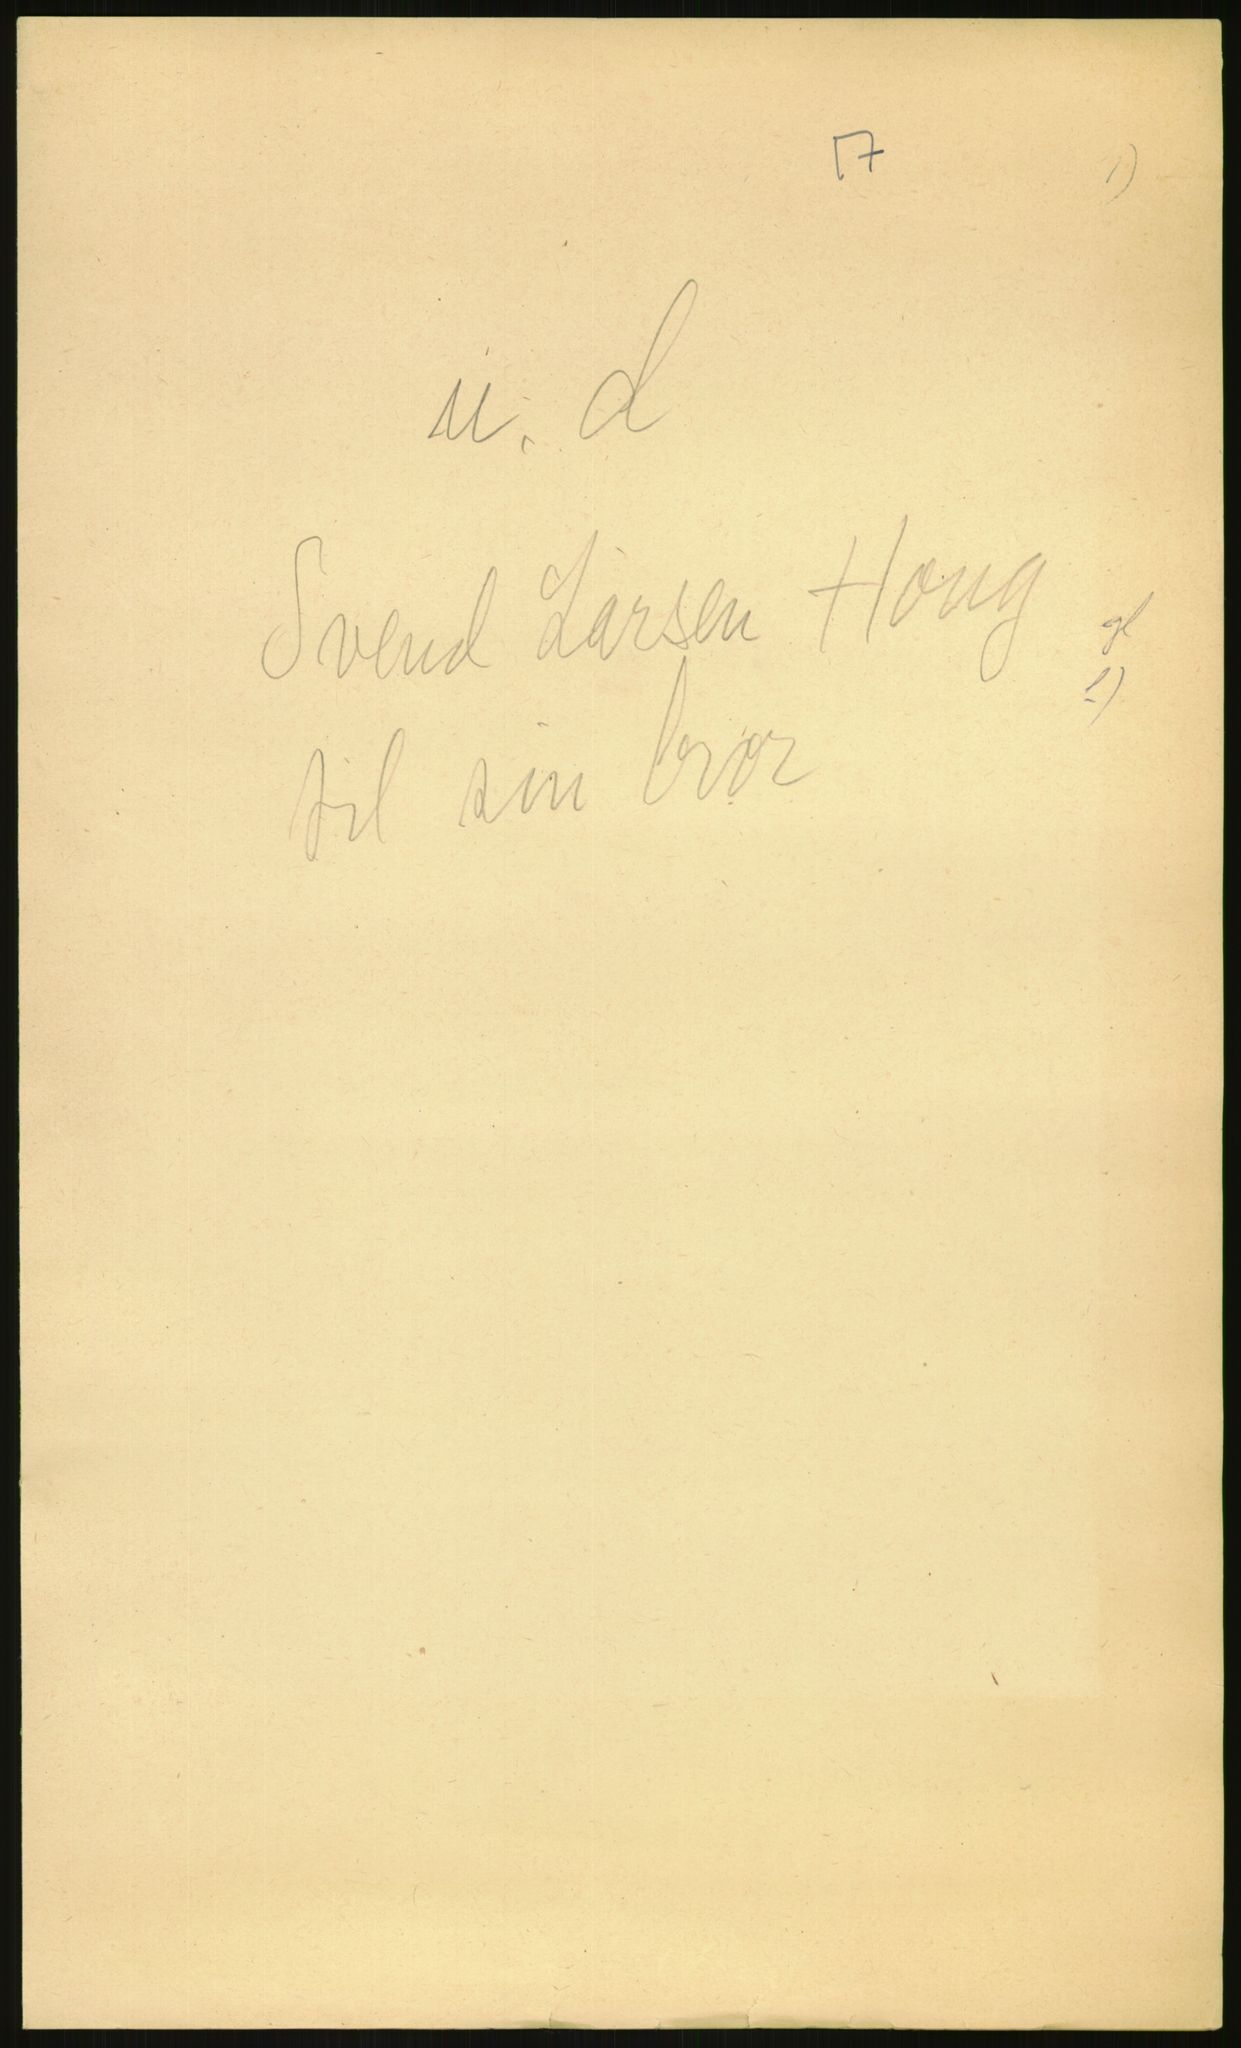 17 1)
u. d
Svend Larsen Houg
gl
1)
til sin bror